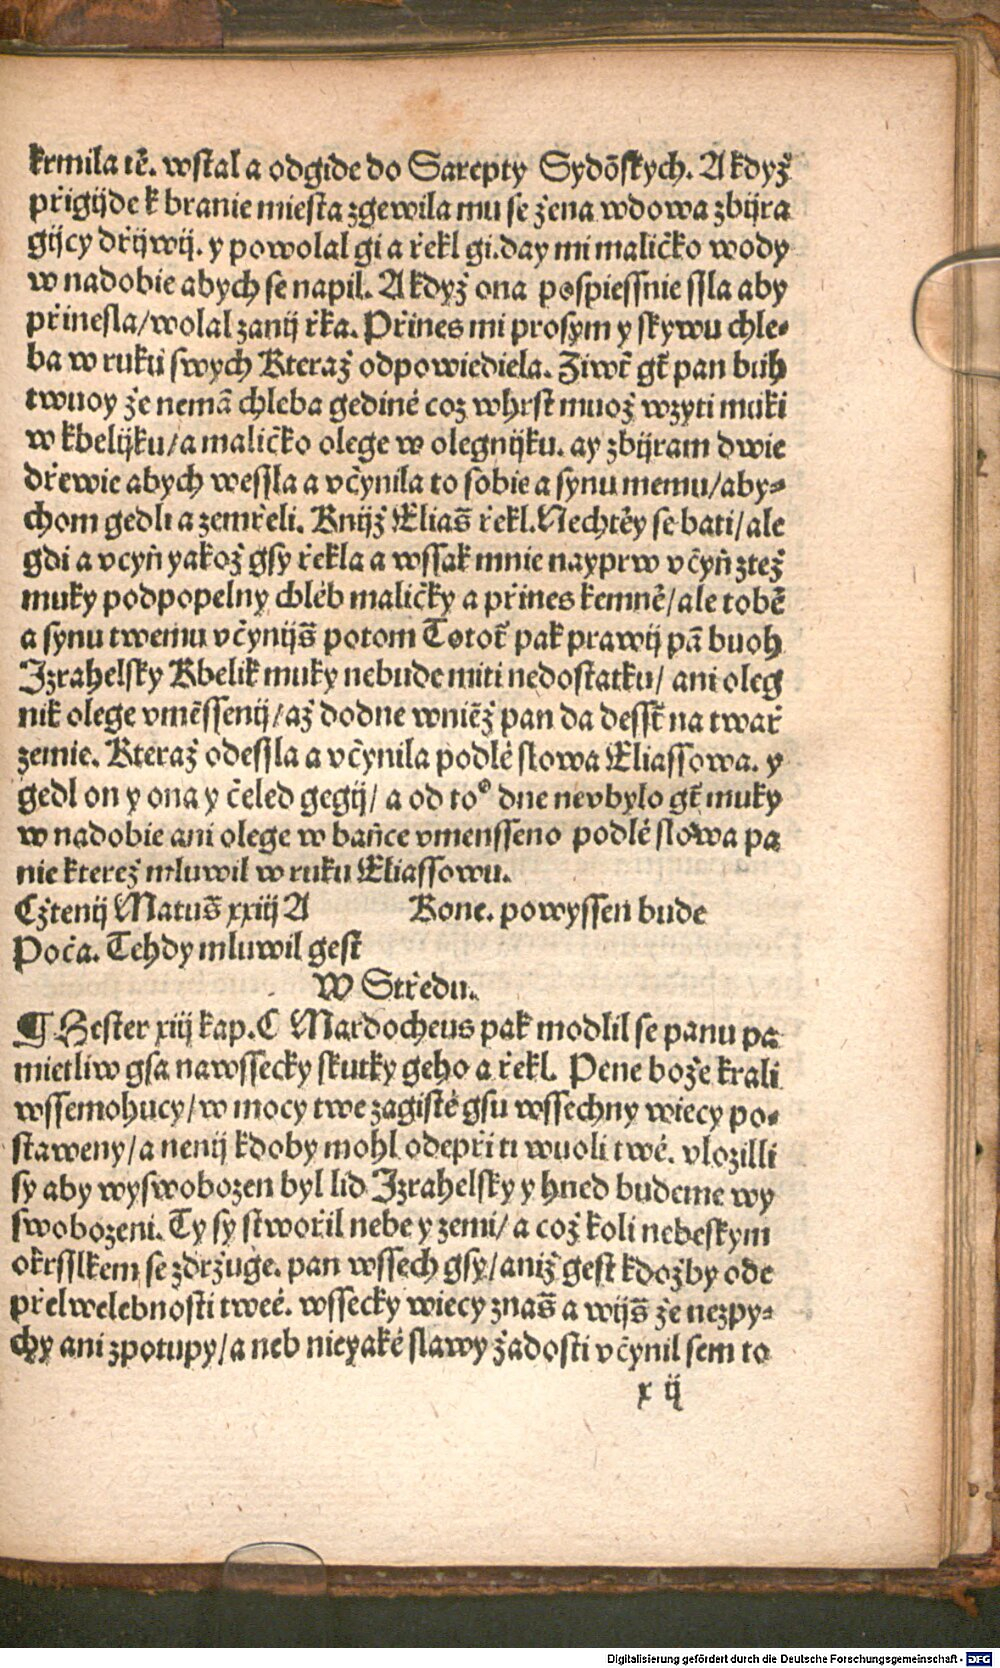 krmila tē. wstal a odgide do Sarepty Sydōskych. A když
přigijde k branie miesta zgewila mu se žena wdowa zbijra
gijcy dřijwij. y powolal gi a řekl gi. day mi maličko wody
w nadobie abych se napil. A když ona pospiessnie ssla aby
přinesla/wolal zanij řka. Přines mi prosym y skywu chle-
ba w ruku swych Kteraž odpowiediela. Ziwť gť pan buh
twuoy že nemā chleba gediné coz w hrst muož wzyti muki
w kbelijku/a maličko olege w olegnijku. ay zbijram dwie
dřewie abych wessla a včynila to sobie a synu memu/aby-
chom gedli a zemřeli. Knijž Eliaš řekl. Nechtěy se bati/ale
gdi a vcyň yakož gsy řekla a wssak mnie nayprw včyň z tež
muky podpopelny chléb maličky a přines kemně/ale tobě
a synu twemu včynijš potom Totoť pak prawij pā buoh
Izrahelsky Kbelik muky nebude miti nedostatku/ ani oleg
nik olege vměssenij/až dodne wniěž pan da dessť na twař
zemie. Kteraž odessla a včynila podlé slowa Eliassowa. y
gedl on y ona y čeled gegij/ a od to° dne nevbylo gť muky
w nadobie ani olege w baňce vmensseno podlé slowa pa
nie kterež mluwil w ruku Eliassowu.
Cžtenij Matuš xxiij A Kone. powyssen bude
Poča. Tehdy mluwil gest
W Středu.
¶ Hester xiij kap. C Mardocheus pak modlil se panu pa
mietliw gsa na wssecky skutky geho a řekl. Pene bože krali
wssemohucy/w mocy twe zagisté gsu wssechny wiecy po-
staweny/a nenij kdoby mohl odepřiti wuoli twé. vlozilli
sy aby wyswobozen byl lid Izrahelsky y hned budeme wy
swobozeni. Ty sy stwořil nebe y zemi/ a což koli nebeskym
okrsslkem se zdržuge. pan wssech gsy/aniž gest kdožby ode
přel welebnosti tweé. wssecky wiecy znaš a wijš že nezpy-
chy ani z potupy/a neb nieyaké slawy žadosti včynil sem to
x ij
Digitalisierung gefördert durch die Deutsche Forschungsgemeinschaft - DFG